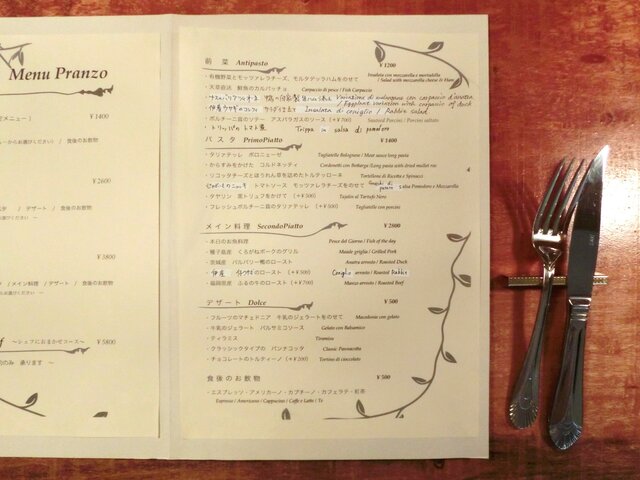 Menu Pranzo
メニュー）
¥1400
ューからお選びください） ／ 食後のお飲物
¥2600
／ デザート ／ 食後のお飲物
¥3800
／メイン料理 ／デザート ／ 食後のお飲物
～シェフにおまかせコース～
¥5800
承ります ～
前 菜 Antipasto ¥1200
・有機野菜とモッツァレラチーズ、モルタデッラハムをのせて Insalata con mozzarella e mortadella
/ Salad with mozzarella cheese & Ham
・天草直送 鮮魚のカルパッチョ Carpaccio di pesce / Fish Carpaccio
Variazione di melanzane con carpaccio d'anatra
/ Eggplant variation with carpaccio of duck
Insalata di coniglio / Rabbit salad
・ポルチーニ茸のソテー アスパラガスのソース (＋¥700) Sauteed Porcini / Porcini saltato
・トリッパのトマト煮 Trippa in salsa di pomodoro
パ ス タ PrimoPiatto ¥1400
・タリアテッレ ボロニェーゼ Tagliatelle Bolognese / Meat sauce long pasta
・からすみをかけた コルドネッティ Cordonetti con Bottarga /Long pasta with dried mullet roe
・リコッタチーズとほうれん草を詰めたトルテッローネ Tortellone di Ricotta e Spinaci
トマトソース モッツァレラチーズをのせて Gnocchi di patate salsa Pomodoro e Mazzarella
・タヤリン 黒トリュフをかけて (＋¥500) Tajarin al Tartufo Nero
・フレッシュポルチーニ茸のタリアテッレ (＋¥500) Tagliatelle con porcini
メイン料理 SecondoPiatto ¥2800
・本日のお魚料理 Pesce del Giorno / Fish of the day
・種子島産 くろがねポークのグリル Maiale griglia / Grilled Pork
・茨城産 バルバリー鴨のロースト Anatra arrosto / Roasted Duck
・ 仔ウサギのロースト (＋¥300) Coniglio arrosto / Roasted Rabbit
・福岡県産 ふるの牛のロースト (＋¥700) Manzo arrosto / Roasted Beef
デ ザ ー ト Dolce ¥500
・フルーツのマチェドニア 牛乳のジェラートをのせて Macedonia con gelato
・牛乳のジェラート バルサミコソース Gelato con Balsamico
・ティラミス Tiramisu
・クラッシックタイプの パンナコッタ Classic Pannacotta
・チョコレートのトルティーノ (＋¥200) Tortino di cioccolato
食後のお飲物 ¥500
・エスプレッソ・アメリカーノ・カプチーノ・カフェラテ・紅茶
Espresso / Americano / Cappucino / Caffe e Latte / Te